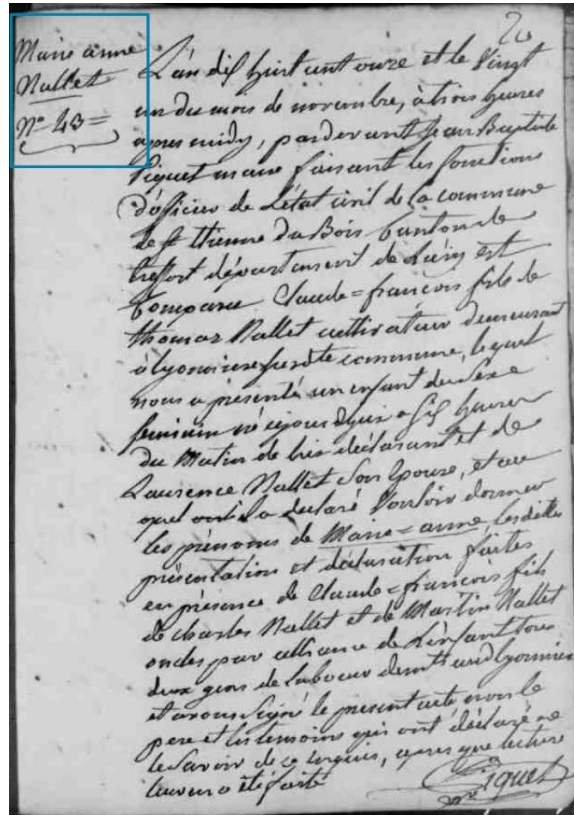 Marie anne
Nallet
N° 43 =
L'an dix huit cent onze et le vingt
un du mois de novembre, à trois heures
apres midy, pardevant Jean Baptiste
Piquet maire faisant les fonctions
d'officier de l'état civil de la commune
de St Etienne du Bois Canton de
treffort département de L'ain est
Comparu Claude = françois fils de
thomas Nallet cultivateur demeurant
à lyonnieres susdte commune, lequel
nous a présenté un enfant du Sexe
feminin né cejourdhui a six heures
du Matin de lui déclarant et de
Laurence Nallet Son Epouse, et au
quel ont déclaré Vouloir donner
les prénoms de Marie = anne, lesdittes
présentation et déclaration faites
en présence de Claude = françois fils
de charles Nallet et de Martin Nallet
oncles par alliance de L'enfant tous
deux gens de labeur demts audt lyonnieres
et avons signé le present acte non le
pere et les temoins qui ont déclaré ne
le savoir de ce enquis, apres que lecture
leur en a été faite
Piquet